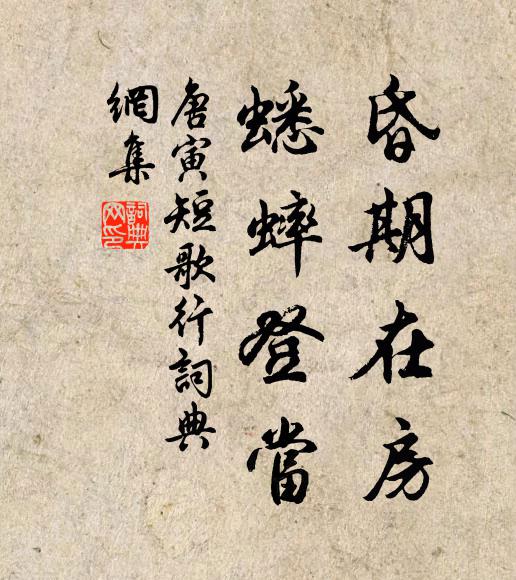 昏期在房
蟋蟀登當
唐寅短歌行詞典
網集
詞典
网印